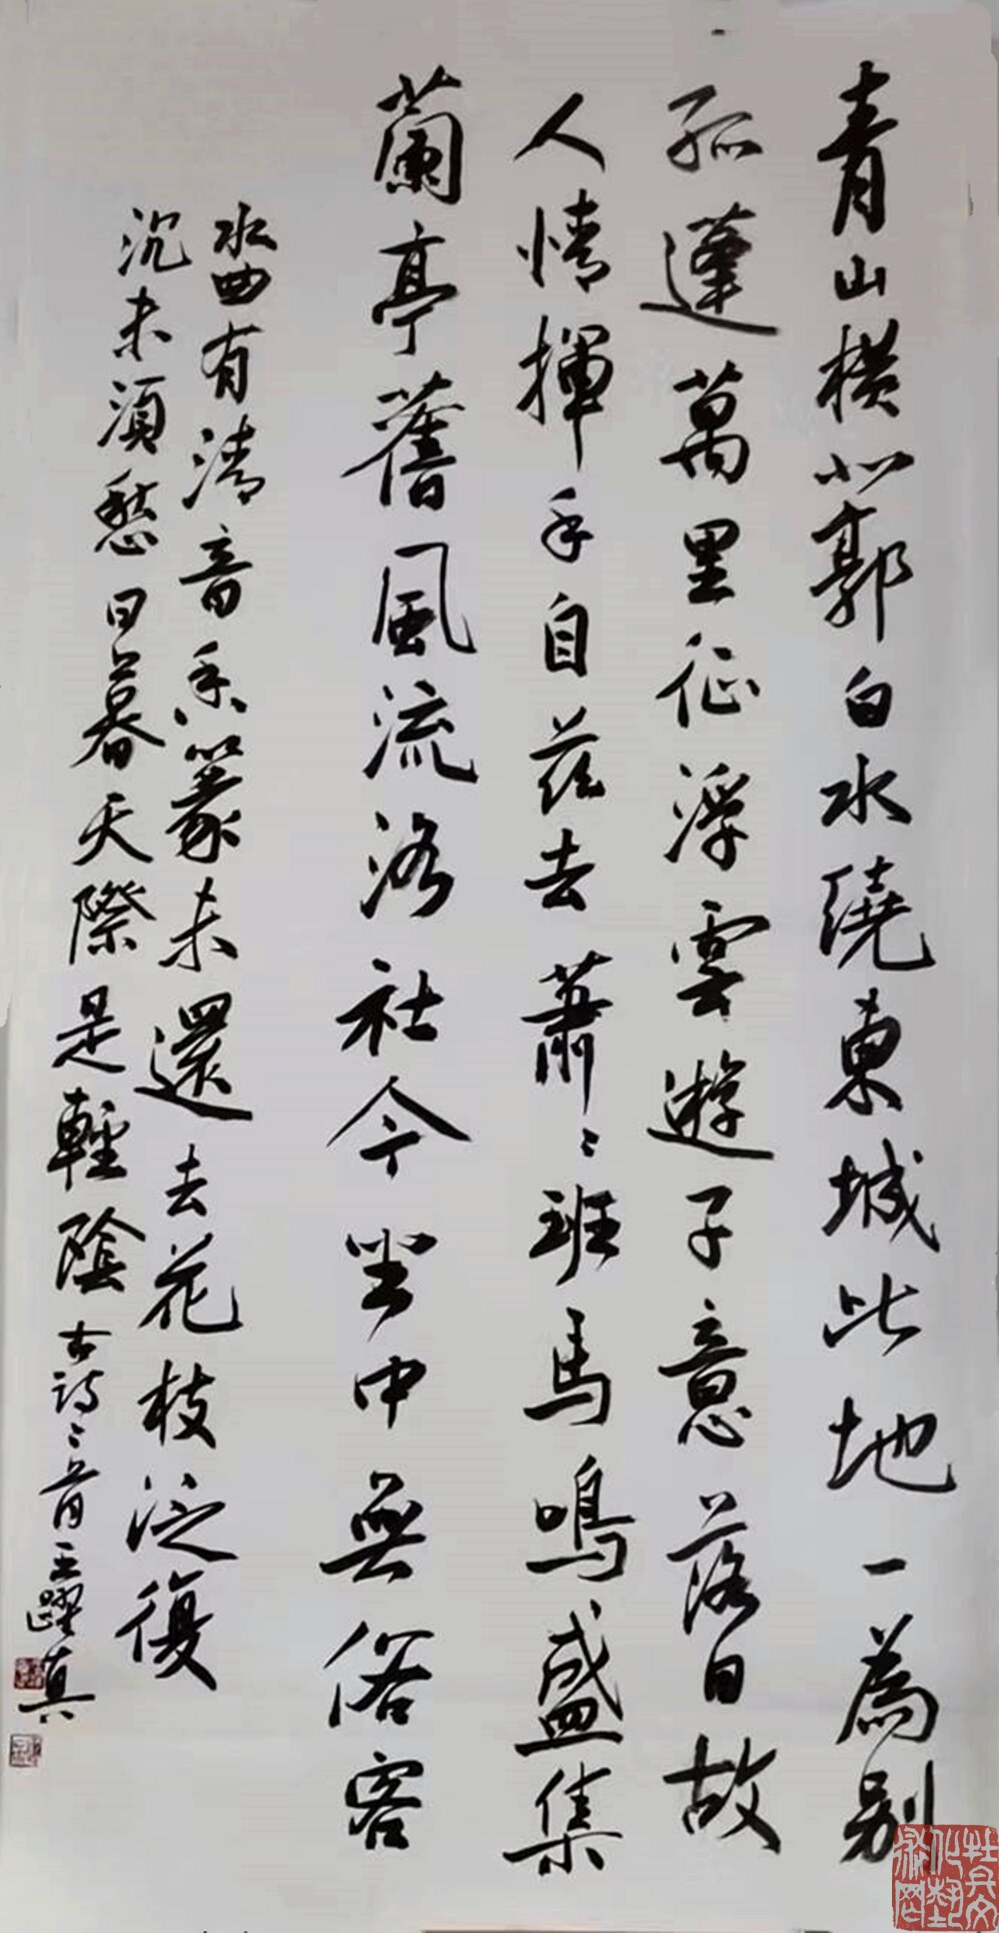 青山橫北郭白水繞東城此地一為別
孤蓬萬里征浮雲遊子意落日故
人情揮手自茲去蕭〻班馬鳴盛集
蘭亭舊風流洛社今坐中無俗客
水曲有清音香篆來還去花枝泛復
沉未須愁日暮天際是輕陰古詩〻首王躍真